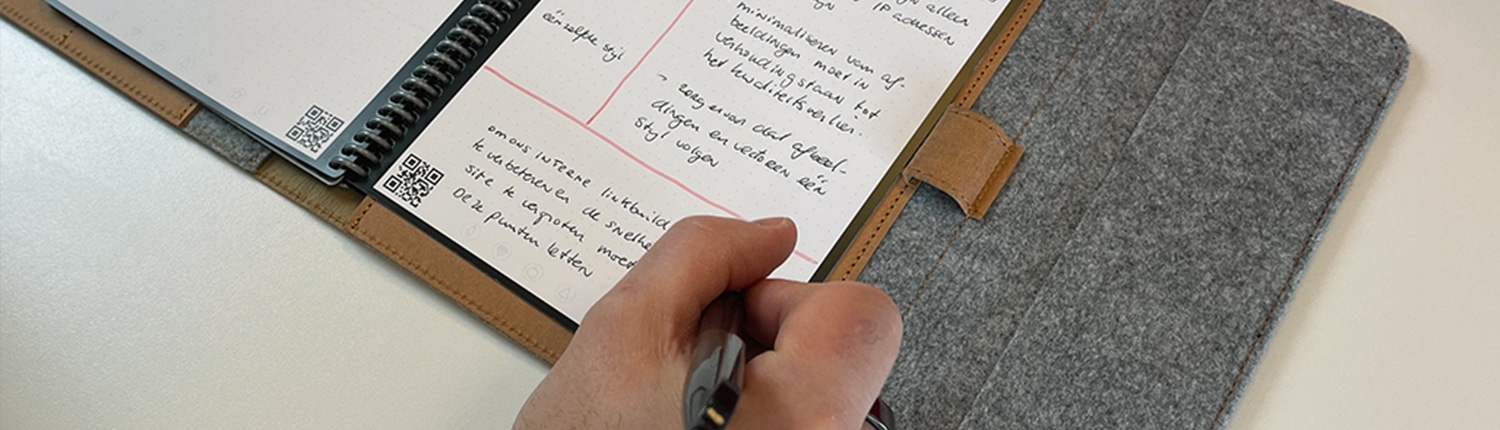 één zelfde stijl
allen
IP adressen
minimaliseren van af-
beeldingen moet in
verhouding staan tot
het kwaliteitsverlies.
→ zorg ervan dat afbeel-
dingen en vectoren één
stijl volgen
om ons INTERNE linkbuild
te verbeteren en de snelhe
site te vergroten moet
Deze punten letten